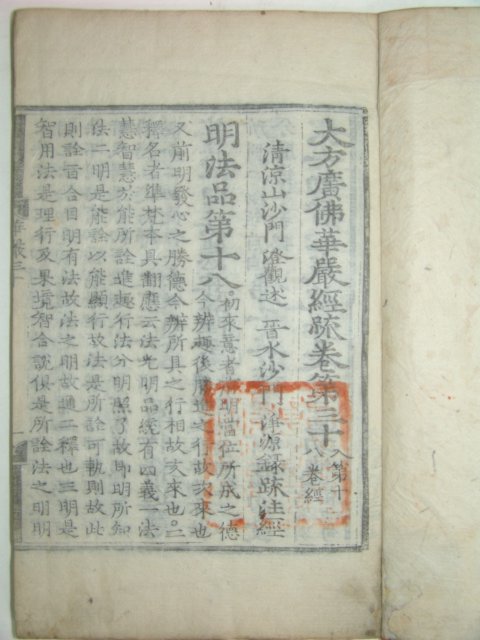 大方廣佛華嚴經疏卷第三十 入第十八卷經
清涼山沙門 澄觀述 晉水沙門 淨源錄疏注經
明法品第十八 初來意者前明當位所成之德
今辨趣後勝進之行故次來也
又前明發心之勝德今辨所具之行相故亦來也。二
釋名者準梵本具翻應云法光明品統有四義一法
慧智慧於能所詮進趣行法分明照了故即明所知
法二明是能詮以能顯行故法是所詮可軌則故此
則詮旨合目明有法故法之明故通二釋也三明是
智用法是理行及果境智合說俱是所詮法之明明